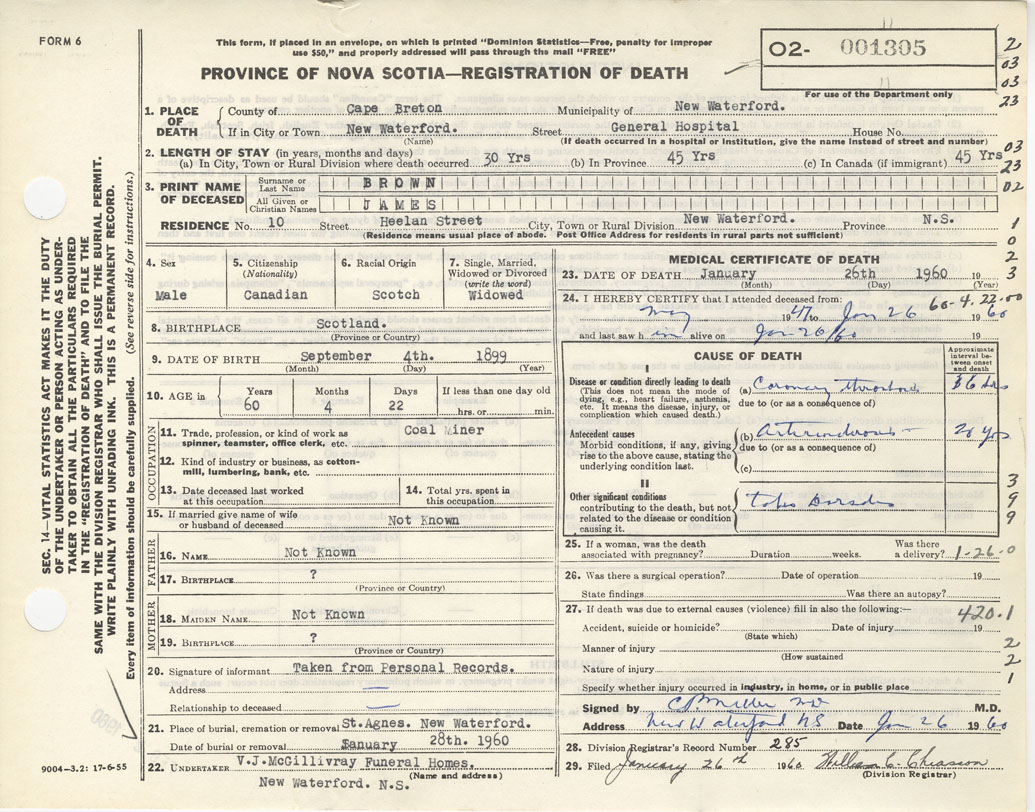 FORM 6
This form, if placed in an envelope, on which is printed "Dominion Statistics—Free, penalty for improper
use $50," and properly addressed will pass through the mail "FREE"
PROVINCE OF NOVA SCOTIA—REGISTRATION OF DEATH
O2- 001305
For use of the Department only
2
03
03
23
1. PLACE OF DEATH
County of Cape Breton Municipality of New Waterford.
If in City or Town New Waterford. Street General Hospital House No.
(Name) (If death occurred in a hospital or Institution, give the name instead of street and number)
2. LENGTH OF STAY (in years, months and days)
(a) In City, Town or Rural Division where death occurred 30 Yrs (b) In Province 45 Yrs (c) In Canada (if immigrant) 45 Yrs
03
23
3. PRINT NAME OF DECEASED
Surname or Last Name BROWN
All Given or Christian Names JAMES
02
RESIDENCE No. 10 Street Heelan Street City, Town or Rural Division New Waterford. Province N.S.
(Residence means usual place of abode. Post Office Address for residents in rural parts not sufficient)
1
0
2
3
4. Sex
Male
5. Citizenship
(Nationality)
Canadian
6. Racial Origin
Scotch
7. Single, Married,
Widowed or Divorced
(write the word)
Widowed
8. BIRTHPLACE Scotland.
(Province or Country)
9. DATE OF BIRTH September 4th. 1899
(Month) (Day) (Year)
10. AGE in
Years Months Days If less than one day old
60 4 22 hrs. or min.
OCCUPATION
11. Trade, profession, or kind of work as
spinner, teamster, office clerk, etc. Coal Miner
12. Kind of industry or business, as cotton-
mill, lumbering, bank, etc.
13. Date deceased last worked
at this occupation.
14. Total yrs. spent in
this occupation.
15. If married give name of wife
or husband of deceased Not Known
FATHER
16. NAME Not Known
17. BIRTHPLACE ?
(Province or Country)
MOTHER
18. MAIDEN NAME Not Known
19. BIRTHPLACE ?
(Province or Country)
20. Signature of informant Taken from Personal Records.
Address —
Relationship to deceased —
21. Place of burial, cremation or removal St.Agnes. New Waterford.
Date of burial or removal January 28th. 1960
22. UNDERTAKER V.J.McGillivray Funeral Homes.
(Name and address)
New Waterford. N.S.
MEDICAL CERTIFICATE OF DEATH
23. DATE OF DEATH January 26th 1960 19
(Month) (Day) (Year)
24. I HEREBY CERTIFY that I attended deceased from: 60-4.22-00
May 1947 to Jan 26 1960
and last saw h im alive on Jan 26/60 19
CAUSE OF DEATH
Approximate
interval be-
tween onset
and death
I
Disease or condition directly leading to death
(This does not mean the mode of
dying, e.g., heart failure, asthenia,
etc. It means the disease, injury, or
complication which caused death.)
(a) Coronary thrombosis 36 hrs
due to (or as a consequence of)
Antecedent causes
Morbid conditions, if any, giving
rise to the above cause, stating the
underlying condition last.
(b) 20 yrs
due to (or as a consequence of)
(c)
II
Other significant conditions
contributing to the death, but not
related to the disease or condition
causing it.
Tabes Dorsalis
3
9
9
25. If a woman, was the death
associated with pregnancy? Duration weeks. Was there
a delivery? 1-26-0
26. Was there a surgical operation? Date of operation 19
State findings Was there an autopsy?
27. If death was due to external causes (violence) fill in also the following:—
420.1
Accident, suicide or homicide? Date of injury 19
(State which)
Manner of injury
(How sustained
Nature of injury
2
2
1
Specify whether injury occurred in industry, in home, or in public place
Signed by M.D.
Address New Waterford NS Date Jan 26 1960
28. Division Registrar's Record Number 285
29. Filed January 26th 1960 William C. Chiasson
(Division Registrar)
SEC. 14—VITAL STATISTICS ACT MAKES IT THE DUTY
OF THE UNDERTAKER OR PERSON ACTING AS UNDER-
TAKER TO OBTAIN ALL THE PARTICULARS REQUIRED
IN THE "REGISTRATION OF DEATH" AND TO FILE THE
SAME WITH THE DIVISION REGISTRAR WHO SHALL ISSUE THE BURIAL PERMIT.
WRITE PLAINLY WITH UNFADING INK. THIS IS A PERMANENT RECORD.
Every item of information should be carefully supplied. (See reverse side for instructions.)
9004-3.2: 17-6-55